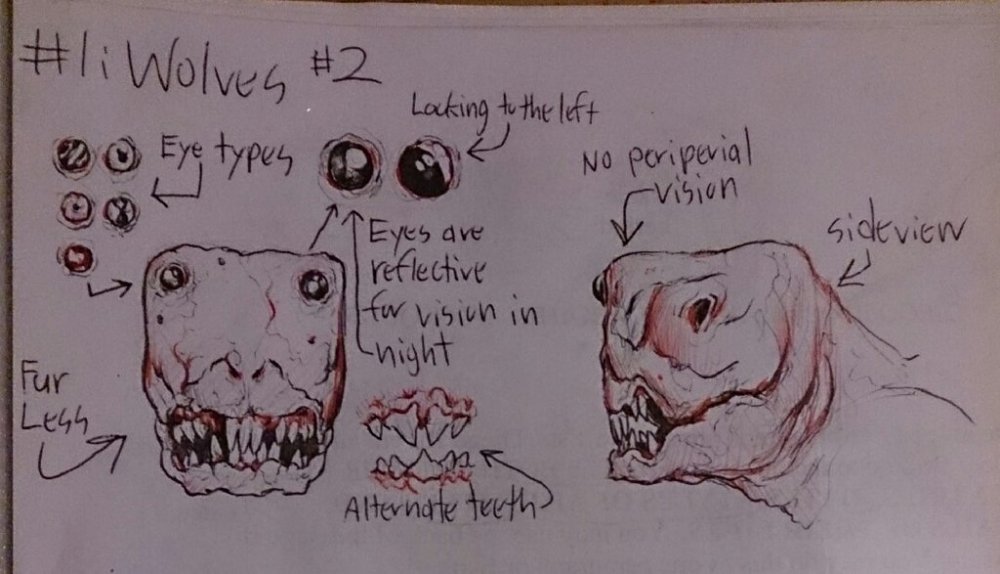 #1i Wolves #2
Looking to the left
Eye types
No periperial
vision
sideview
Eyes are
reflective
for vision in
night
Fur
Less
Alternate teeth